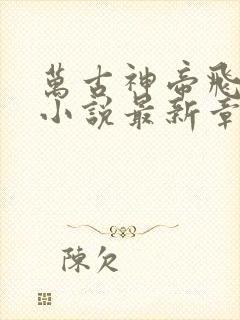 萬古神帝飛
小說最新章
陳欠